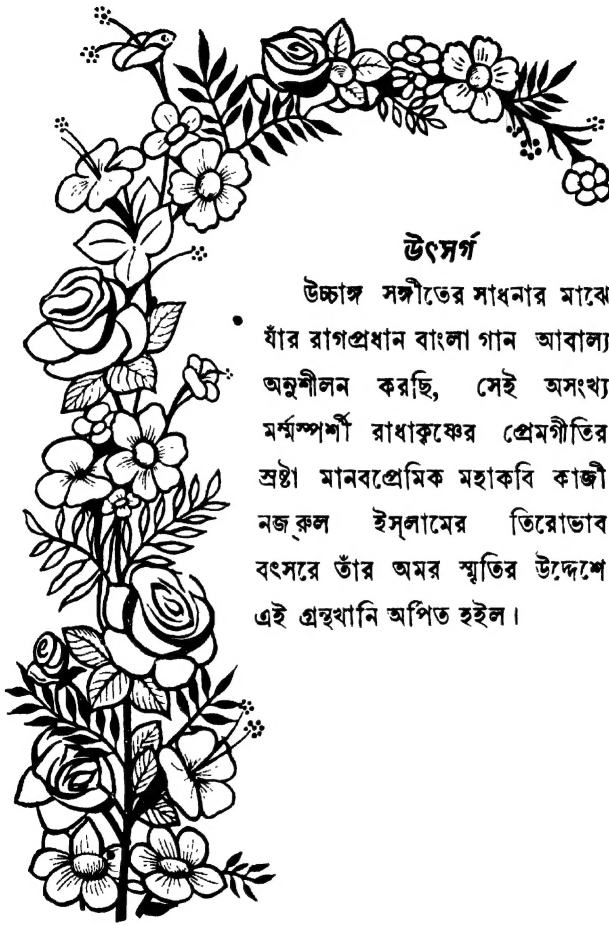 উৎসর্গ
উচ্চাঙ্গ সঙ্গীতের সাধনার মাঝে
যাঁর রাগপ্রধান বাংলা গান আবাল্য
অনুশীলন করছি, সেই অসংখ্য
মর্ম্মস্পর্শী রাধাকৃষ্ণের প্রেমগীতির
স্রষ্টা মানবপ্রেমিক মহাকবি কাজী
নজরুল ইস্লামের তিরোভাব
বৎসরে তাঁর অমর স্মৃতির উদ্দেশে
এই গ্রন্থখানি অর্পিত হইল।